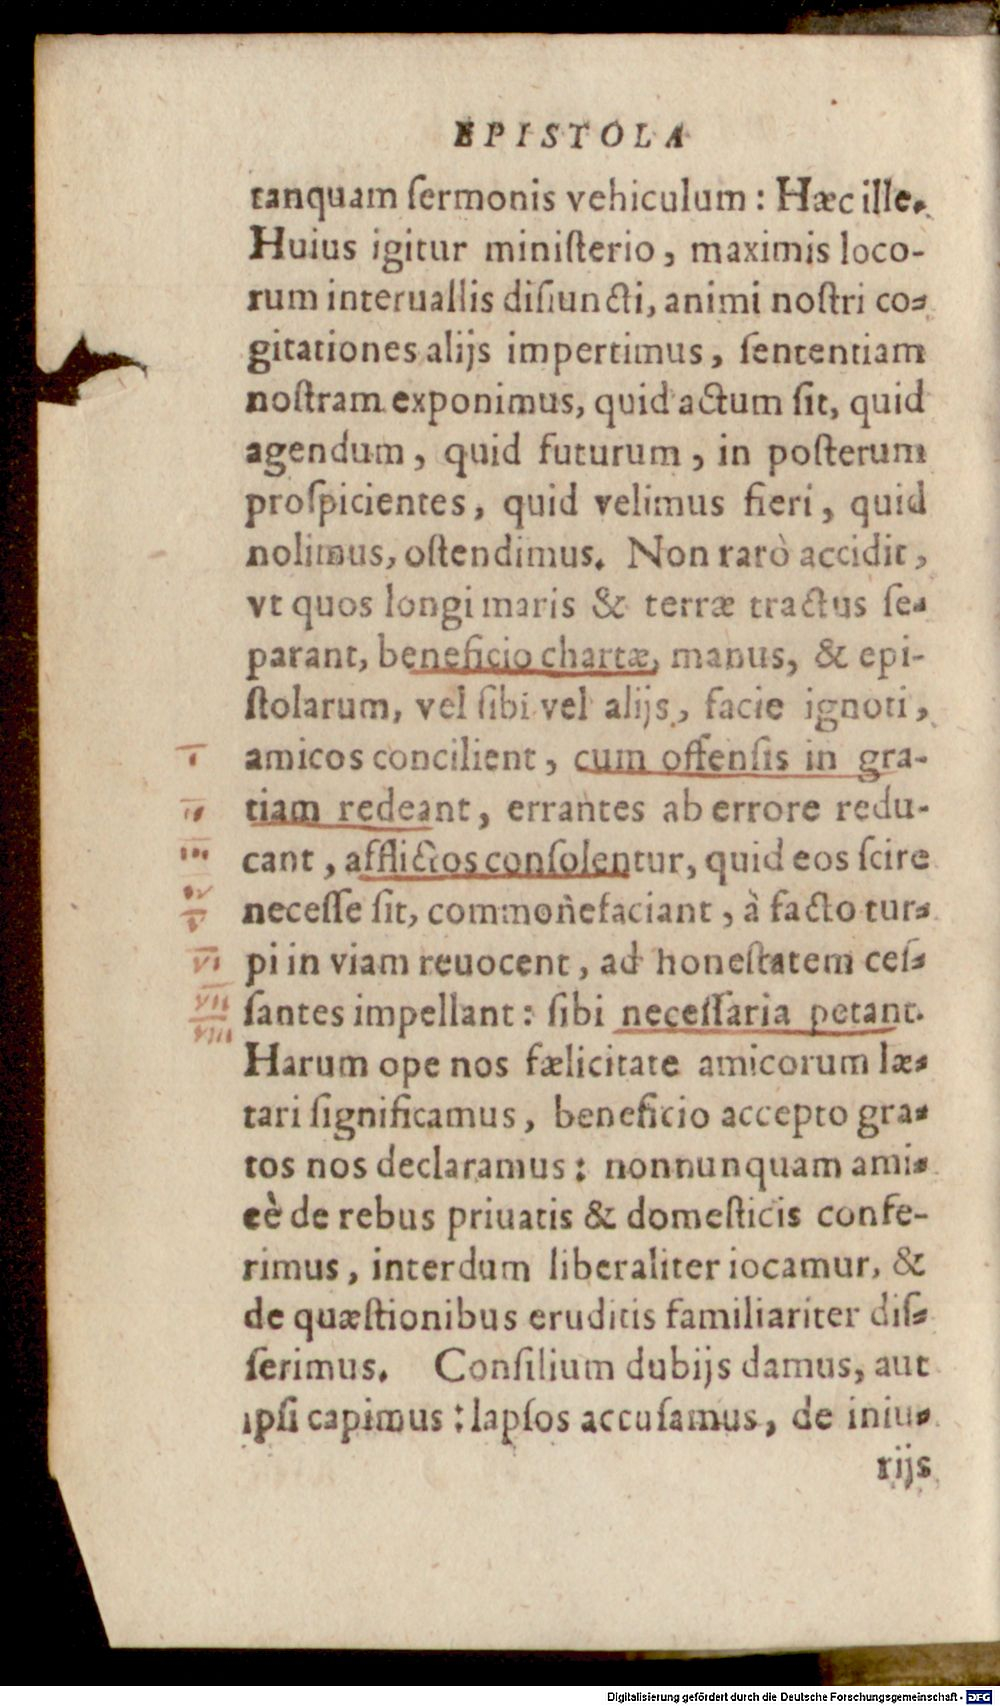 EPISTOLA
tanquam ſermonis vehiculum : Hæc ille.
Huius igitur miniſterio, maximis loco-
rum interuallis diſiuncti, animi noſtri co-
gitationes alijs impertimus, ſententiam
noſtram exponimus, quid actum ſit, quid
agendum, quid futurum, in poſterum
proſpicientes, quid velimus fieri, quid
nolimus, oſtendimus. Non rarò accidit,
vt quos longi maris & terræ tractus ſe-
parant, beneficio chartæ, manus, & epi-
ſtolarum, vel ſibi vel alijs, facie ignoti,
I amicos concilient, cum offenſis in gra-
II tiam redeant, errantes ab errore redu-
III cant, afflictos conſolentur, quid eos ſcire
IV
V neceſſe ſit, commonefaciant, à facto tur-
VI pi in viam reuocent, ad honeſtatem ceſ-
VII ſantes impellant: ſibi neceſſaria petant.
VIII
Harum ope nos fælicitate amicorum læ-
tari ſignificamus, beneficio accepto gra-
tos nos declaramus: nonnunquam ami-
cè de rebus priuatis & domeſticis confe-
rimus, interdum liberaliter iocamur, &
de quæſtionibus eruditis familiariter diſ-
ſerimus. Conſilium dubijs damus, aut
ipſi capimus: lapſos accuſamus, de iniu-
rijs
Digitalisierung gefördert durch die Deutsche Forschungsgemeinschaft - DFG